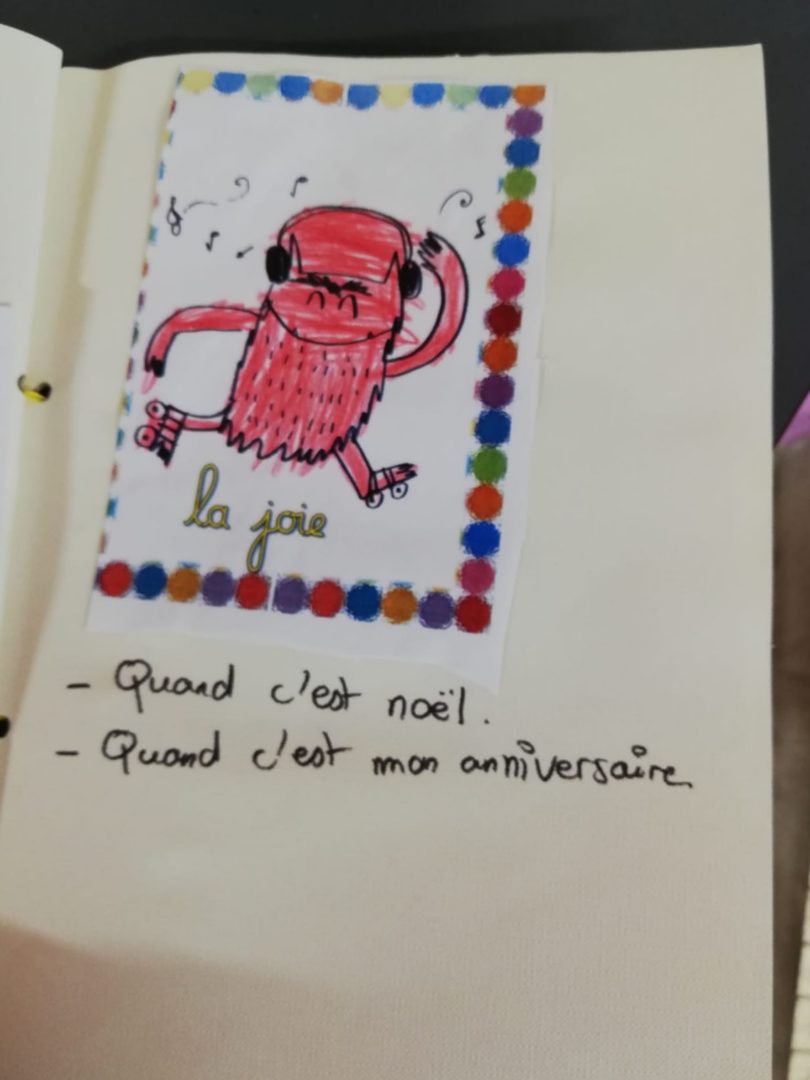 la joie
- Quand c'est noël.
- Quand c'est mon anniversaire